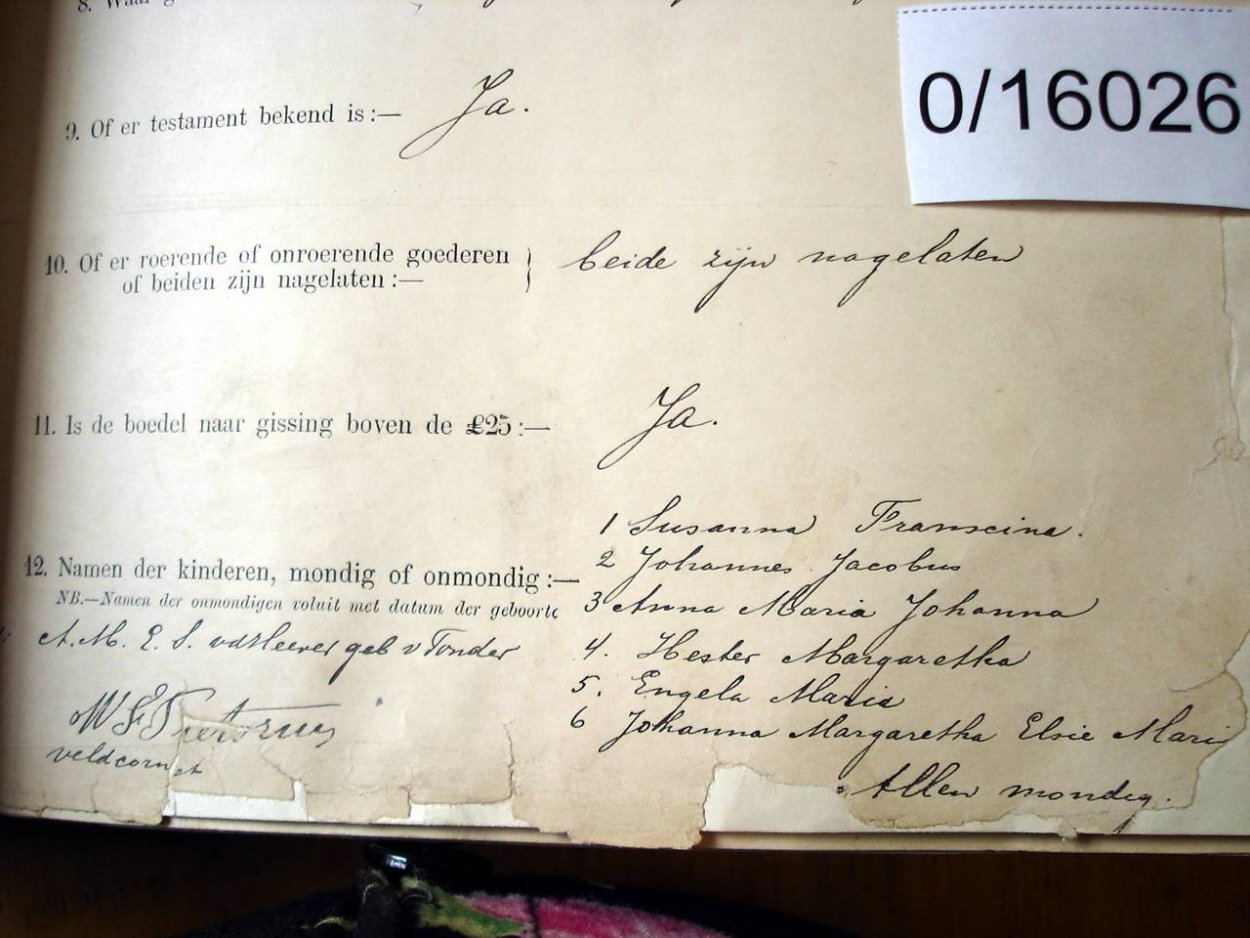 8. Waar
0/16026
9. Of er testament bekend is :— Ja.
10. Of er roerende of onroerende goederen
of beiden zijn nagelaten :— } beide zijn nagelaten
11. Is de boedel naar gissing boven de £25 :— Ja.
12. Namen der kinderen, mondig of onmondig :—
NB.—Namen der onmondigen voluit met datum der geboorte
1 Susanna Franscina.
2 Johannes Jacobus
3 Anna Maria Johanna
4. Hester Margaretha
5. Engela Maria
6 Johanna Margaretha Elsie Mari
Allen mondig.
A. M. E. S. vdHeever geb v Tonder
Pretorius
veldcornet